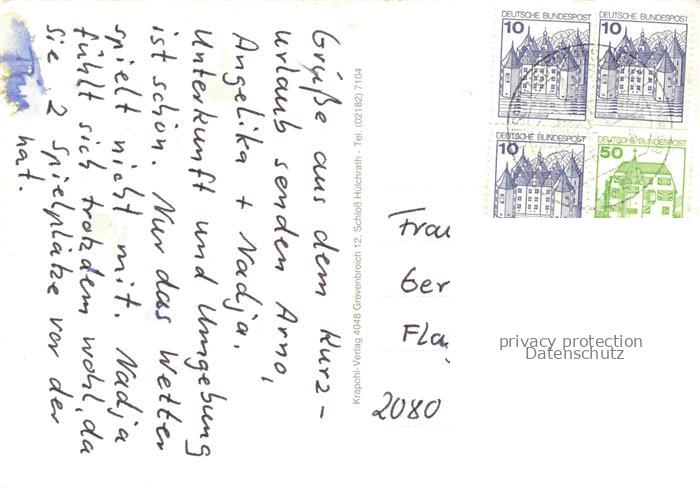 Grüße aus dem Kurz-
urlaub senden Arno,
Angelika + Nadja.
Unterkunft und Umgebung
ist schön. Nur das Wetter
spielt nicht mit. Nadja
fühlt sich trotzdem wohl, da
sie 2 Spielplätze vor der
hat.
Krapohl-Verlag 4048 Grevenbroich 12, Schloß Hülchrath - Tel. (02182) 7104
DEUTSCHE BUNDESPOST
10
DEUTSCHE BUNDESPOST
10
DEUTSCHE BUNDESPOST
10
DEUTSCHE BUNDESPOST
50
Frau
Ger
Fla
2080
privacy protection
Datenschutz